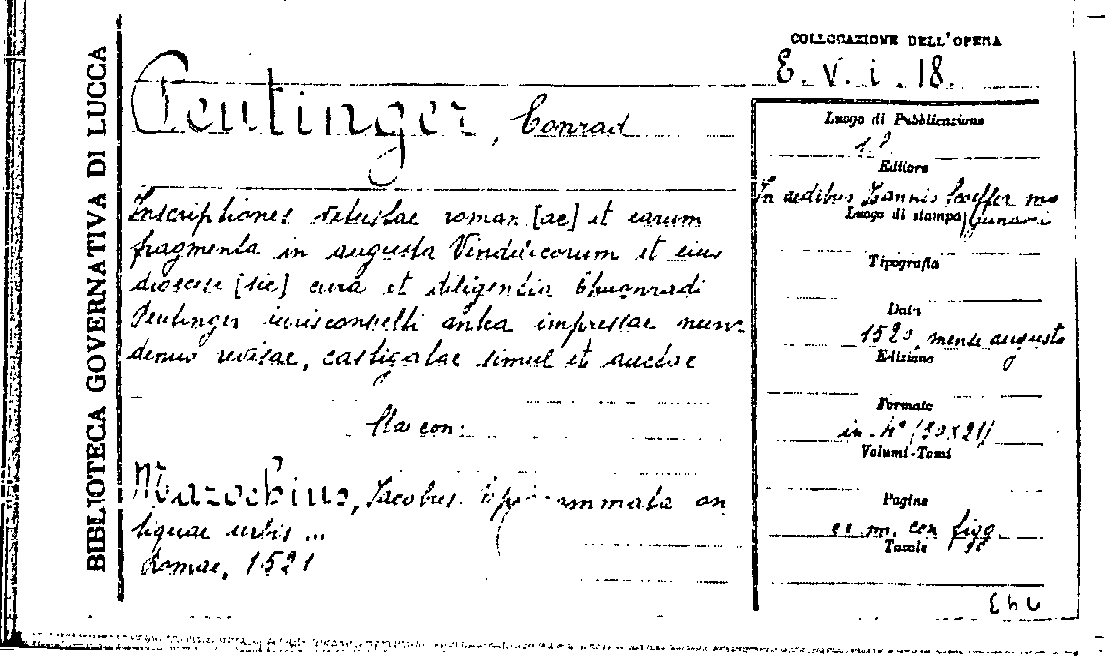 BIBLIOTECA GOVERNATIVA DI LUCCA
COLLOCAZIONE DELL'OPERA
E. V. i. 18.
Peutinger, Conrad
Inscriptiones vetustae roman [ae] et earum
fragmenta in augusta Vindelicorum et eius
diocesi [sic] cura et diligentia Chuonradi
Peutinger iurisconsulti antea impressae nunc
denuo revisae, castigatae simul et auctae
Sta con:
Mazochius, Jacobus. Epigrammata an
tiquae urbis ...
Romae, 1521
Luogo di Pubblicazione
Editore
In aedibus Ioannis Scoeffer mo
Luogo di stampa
gunacii
Tipografia
Data
1520, mense augusto
Edizione
Formato
in 4° (30x21)
Volumi-Tomi
Pagine
cc. nn. con figg.
Tavole